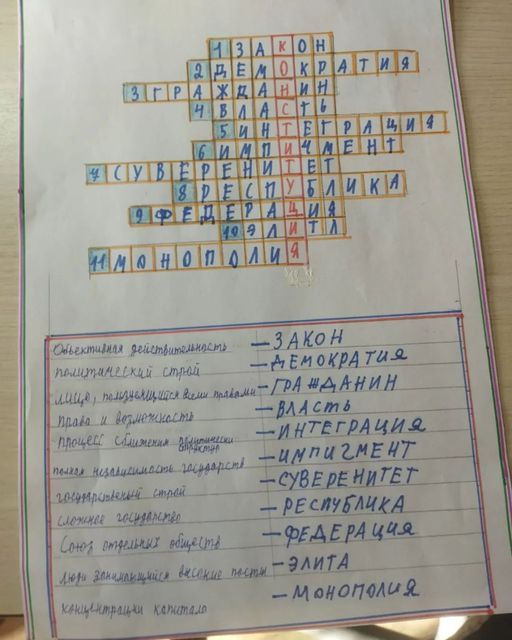 1 ЗАКОН
2 ДЕМОКРАТИЯ
3 ГРАЖДАНИН
4 ВЛАСТЬ
5 ИНТЕГРАЦИЯ
6 ИМПИЧМЕНТ
7 СУВЕРЕНИТЕТ
8 РЕСПУБЛИКА
9 ФЕДЕРАЦИЯ
10 ЭЛИТА
11 МОНОПОЛИЯ
Объективная действительность — ЗАКОН
политический строй — ДЕМОКРАТИЯ
лицо, пользующийся всеми правами — ГРАЖДАНИН
права и возможность — ВЛАСТЬ
процесс сближения политически структур — ИНТЕГРАЦИЯ
полная независимость государств — ИМПИГМЕНТ
государственый строй — СУВЕРЕНИТЕТ
сложное государство — РЕСПУБЛИКА
Союз отдельных обществ — ФЕДЕРАЦИЯ
люди занимающийся высокие посты — ЭЛИТА
концентрации капитало — МОНОПОЛИЯ